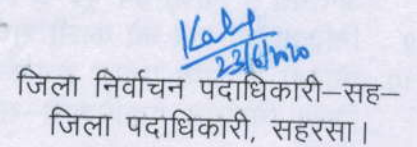 23/6/2020
जिला निर्वाचन पदाधिकारी–सह–
जिला पदाधिकारी, सहरसा।